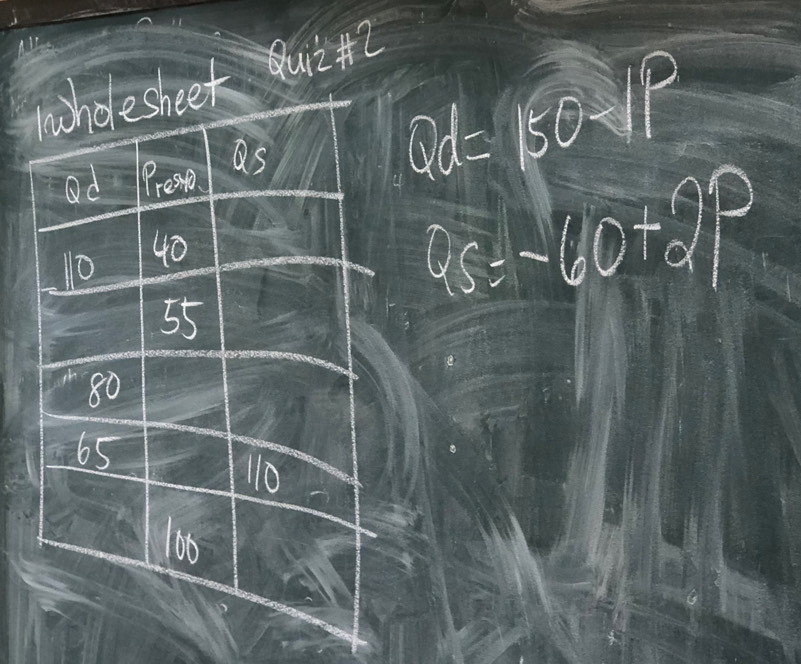 Quiz #2
1 wholesheet
Qd Qs
110 40
55
80
65 110
100
Qd = 150 - 1P
Qs = -60 + 2P